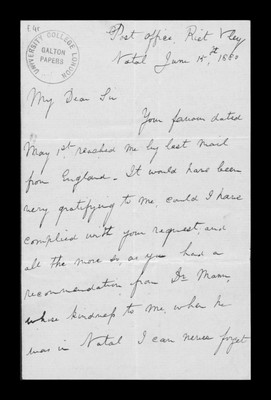 UNIVERSITY COLLEGE LONDON
GALTON
PAPERS
Post office, Riet Vley
Natal June 15th 188
My Dear Sir
Your favour dated
May 1st reached me by last mail
from England - It would have been
very gratifying to me, could I have
complied with your request, and
all the more so, as you had a
recommendation from Dr Mann,
whose kindness to me, when he
was in Natal I can never forget